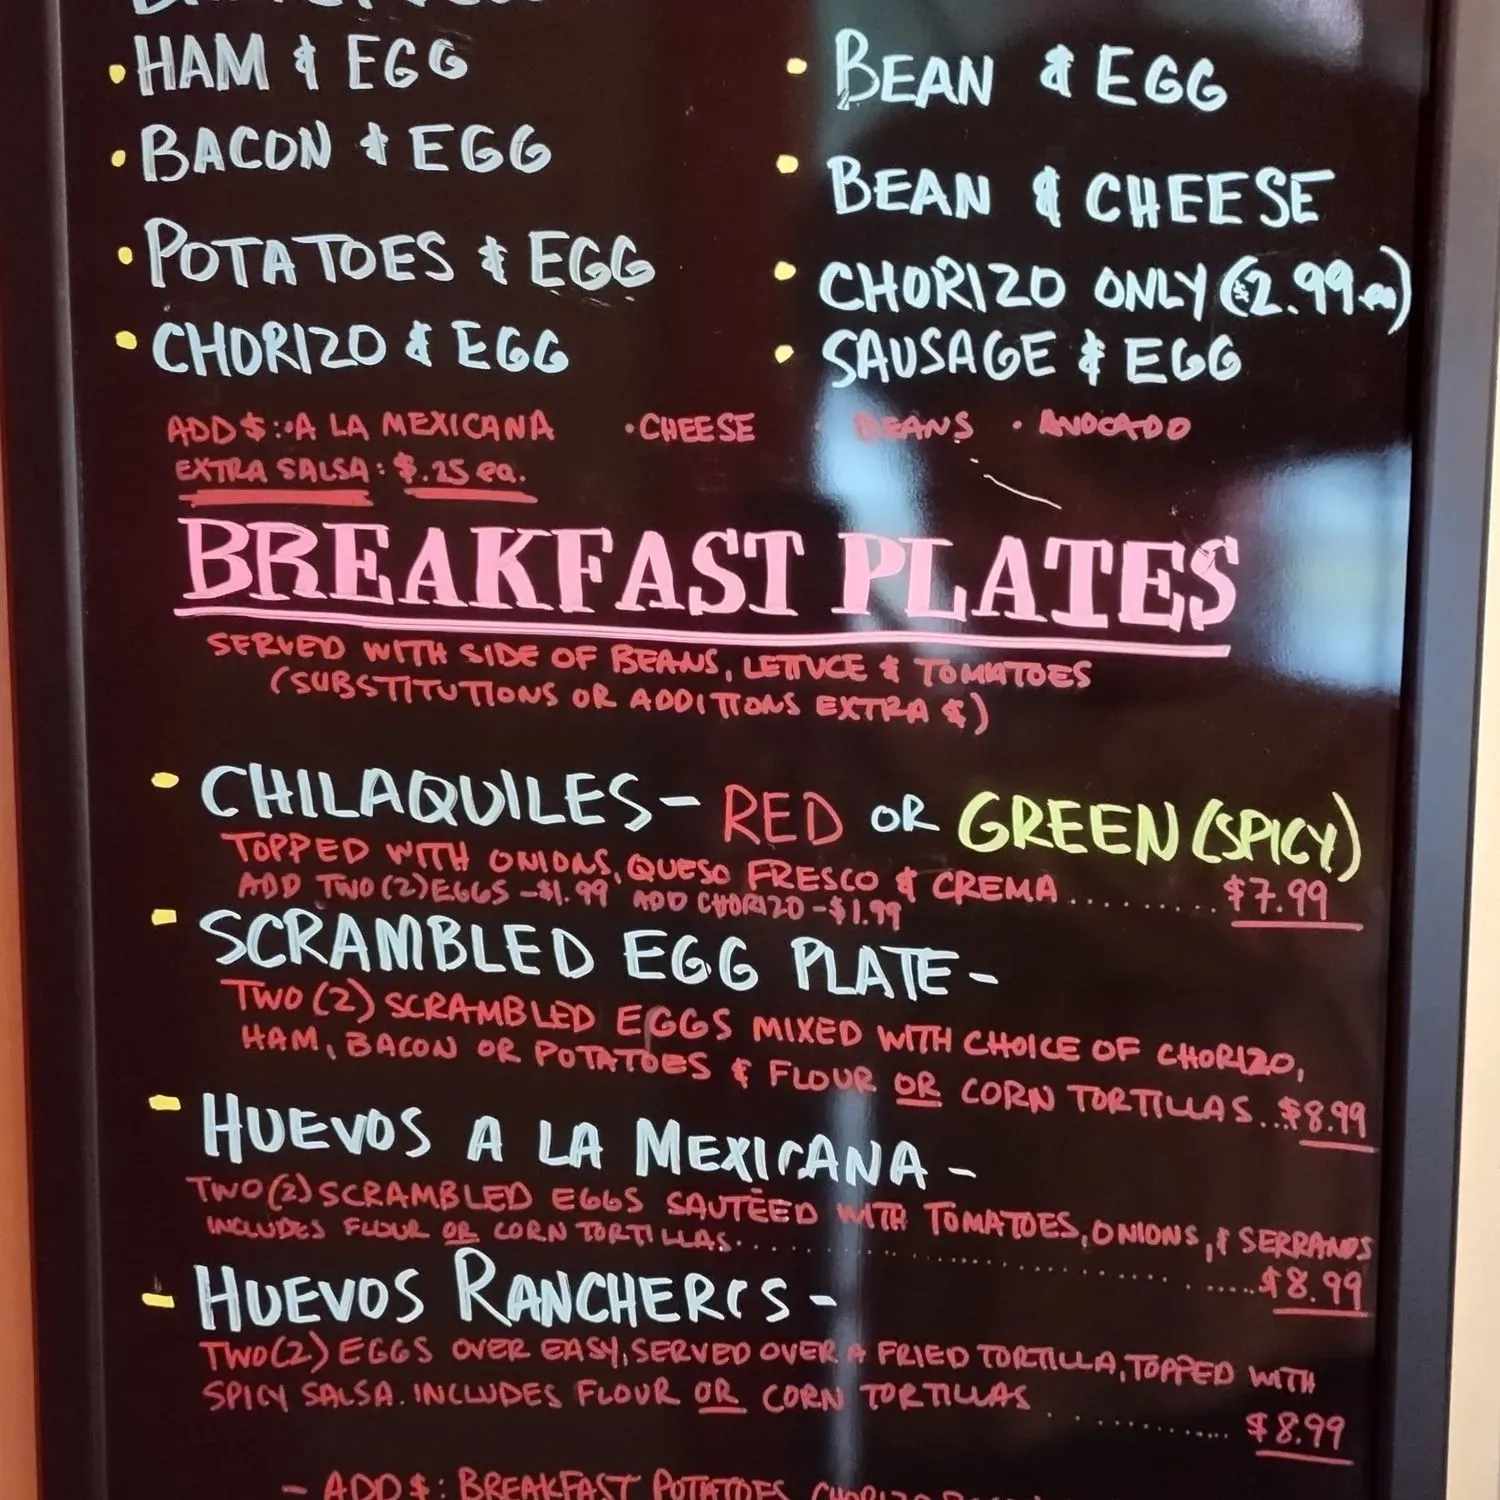 • HAM & EGG
• BACON & EGG
• POTATOES & EGG
• CHORIZO & EGG
• BEAN & EGG
• BEAN & CHEESE
• CHORIZO ONLY ($2.99 ea)
• SAUSAGE & EGG
ADD $: • A LA MEXICANA • CHEESE • BEANS • AVOCADO
EXTRA SALSA: $.25 ea.
BREAKFAST PLATES
SERVED WITH SIDE OF BEANS, LETTUCE & TOMATOES
(SUBSTITUTIONS OR ADDITIONS EXTRA $)
- CHILAQUILES - RED OR GREEN (SPICY)
TOPPED WITH ONIONS, QUESO FRESCO & CREMA ......... $7.99
ADD TWO (2) EGGS - $1.99 ADD CHORIZO - $1.99
- SCRAMBLED EGG PLATE -
TWO (2) SCRAMBLED EGGS MIXED WITH CHOICE OF CHORIZO,
HAM, BACON OR POTATOES & FLOUR OR CORN TORTILLAS ... $8.99
- HUEVOS A LA MEXICANA -
TWO (2) SCRAMBLED EGGS SAUTEED WITH TOMATOES, ONIONS, & SERRANOS
INCLUDES FLOUR OR CORN TORTILLAS .................... $8.99
- HUEVOS RANCHEROS -
TWO (2) EGGS OVER EASY, SERVED OVER A FRIED TORTILLA, TOPPED WITH
SPICY SALSA. INCLUDES FLOUR OR CORN TORTILLAS ............ $8.99
- ADD $: BREAKFAST POTATOES, CHORIZO